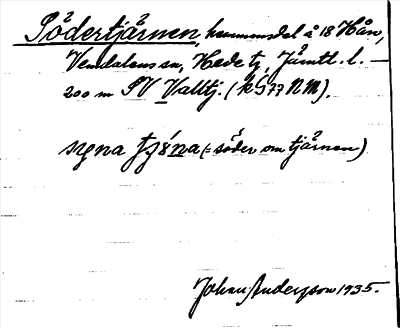 Södertjärnen, hemmansdel å 18 Hån,
Vemdalens sn, Hede tg, Jämtl. l. —
200 m SV Valltj. (kG77NM).
(= söder om tjärnen)
Johan Andersson 1935.